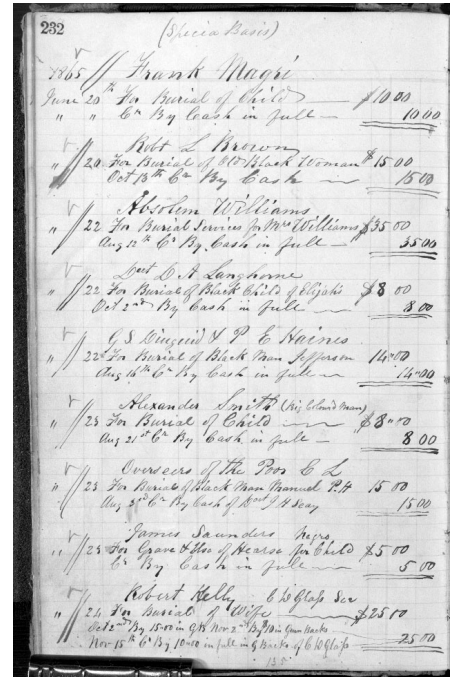 232 (Specia Basis)
1865 Frank Magri
June 20th For Burial of Child $10 00
" " Cr By Cash in full 10 00
Robt L Brown
" 20 For Burial of Old Black Woman $15 00
Oct 13th Cr By Cash 15 00
Absolem Williams
" 22 For Burial Services for Mrs Williams $35 00
Aug 12th Cr By Cash in full 35 00
D A Langhorne
" 22 For Burial of Black Child of Elijahs $8 00
Oct 2nd By Cash in full 8 00
G S Diuguid & P E Haines
" 22 For Burial of Black Man Jefferson 14"00
Aug 14th Cr By Cash in full 14"00
Alexander Smith (Colored Man)
" 23 For Burial of Child $8"00
Aug 21st Cr By Cash in full 8 00
Overseers of the Poor C L
" 23 For Burial of Black Man Manuel P.H 15 00
Aug Cr By Cash of J H Seay 15 00
James Saunders Negro
" 23 For Grave & Use of Hearse for Child $5 00
Cr By Cash in full 5.00
Robert Kelly C W Glass
" 24 For Burial of Wife $25 00
Oct 2nd By 15-00 in G/B Nov 2nd By $10 in Green Backs
Nov 15th Cr By 10-00 in full in G Backs of C W Glass 25 00
135